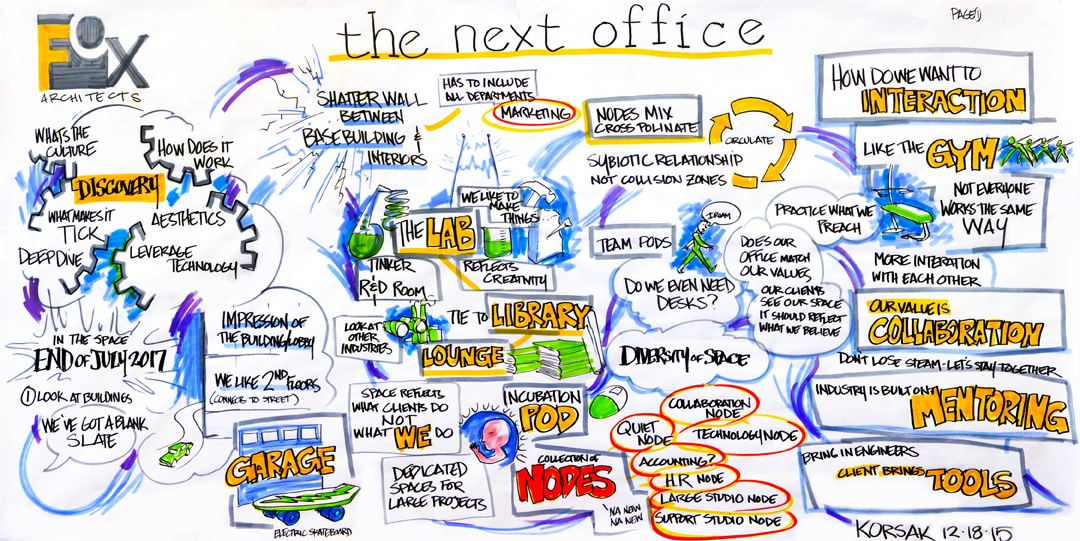 FOX
ARCHITECTS
the next office
PAGE 1)
WHATS THE
CULTURE
HOW DOES IT
WORK
DISCOVERY
WHAT MAKES IT
TICK
AESTHETICS
DEEP DIVE
LEVERAGE
TECHNOLOGY
IN THE SPACE
END OF JULY 2017
① LOOK AT BUILDINGS
WE'VE GOT A BLANK
SLATE
IMPRESSION OF
THE BUILDING/LOBBY
WE LIKE 2ND FLOORS
(CONNECTS TO STREET)
GARAGE
ELECTRIC SKATEBOARD
SHATTER WALL
BETWEEN
BASE BUILDING &
INTERIORS
HAS TO INCLUDE
ALL DEPARTMENTS
MARKETING
NODES MIX
CROSS POLINATE
CIRCULATE
SUBIOTIC RELATIONSHIP
NOT COLLISION ZONES
WE LIKE TO
MAKE
THINGS
THE LAB
TINKER
R&D ROOM
REFLECTS
CREATIVITY
LOOK AT
OTHER
INDUSTRIES
TIE TO LIBRARY
LOUNGE
SPACE REFLECTS
WHAT CLIENTS DO
NOT
WHAT WE DO
DEDICATED
SPACES FOR
LARGE PROJECTS
INCUBATION
POD
COLLECTION OF
NODES
NA NEW
NA NEW
TEAM PODS
I ROAM
DO WE EVEN NEED
DESKS?
DIVERSITY OF SPACE
COLLABORATION
NODE
QUIET
NODE
TECHNOLOGY NODE
ACCOUNTING?
H.R NODE
LARGE STUDIO NODE
SUPPORT STUDIO NODE
PRACTICE WHAT WE
PREACH
DOES OUR
OFFICE MATCH
OUR VALUES
OUR CLIENTS
SEE OUR SPACE
IT SHOULD REFLECT
WHAT WE BELIEVE
HOW DO WE WANT TO
INTERACTION
LIKE THE GYM
NOT EVERYONE
WORKS THE SAME
WAY
MORE INTERATION
WITH EACH OTHER
OUR VALUE IS
COLLABORATION
DON'T LOSE STEAM - LET'S STAY TOGETHER
INDUSTRY IS BUILT ON
MENTORING
BRING IN ENGINEERS
CLIENT BRINGS TOOLS
KORSAK 12-18-15